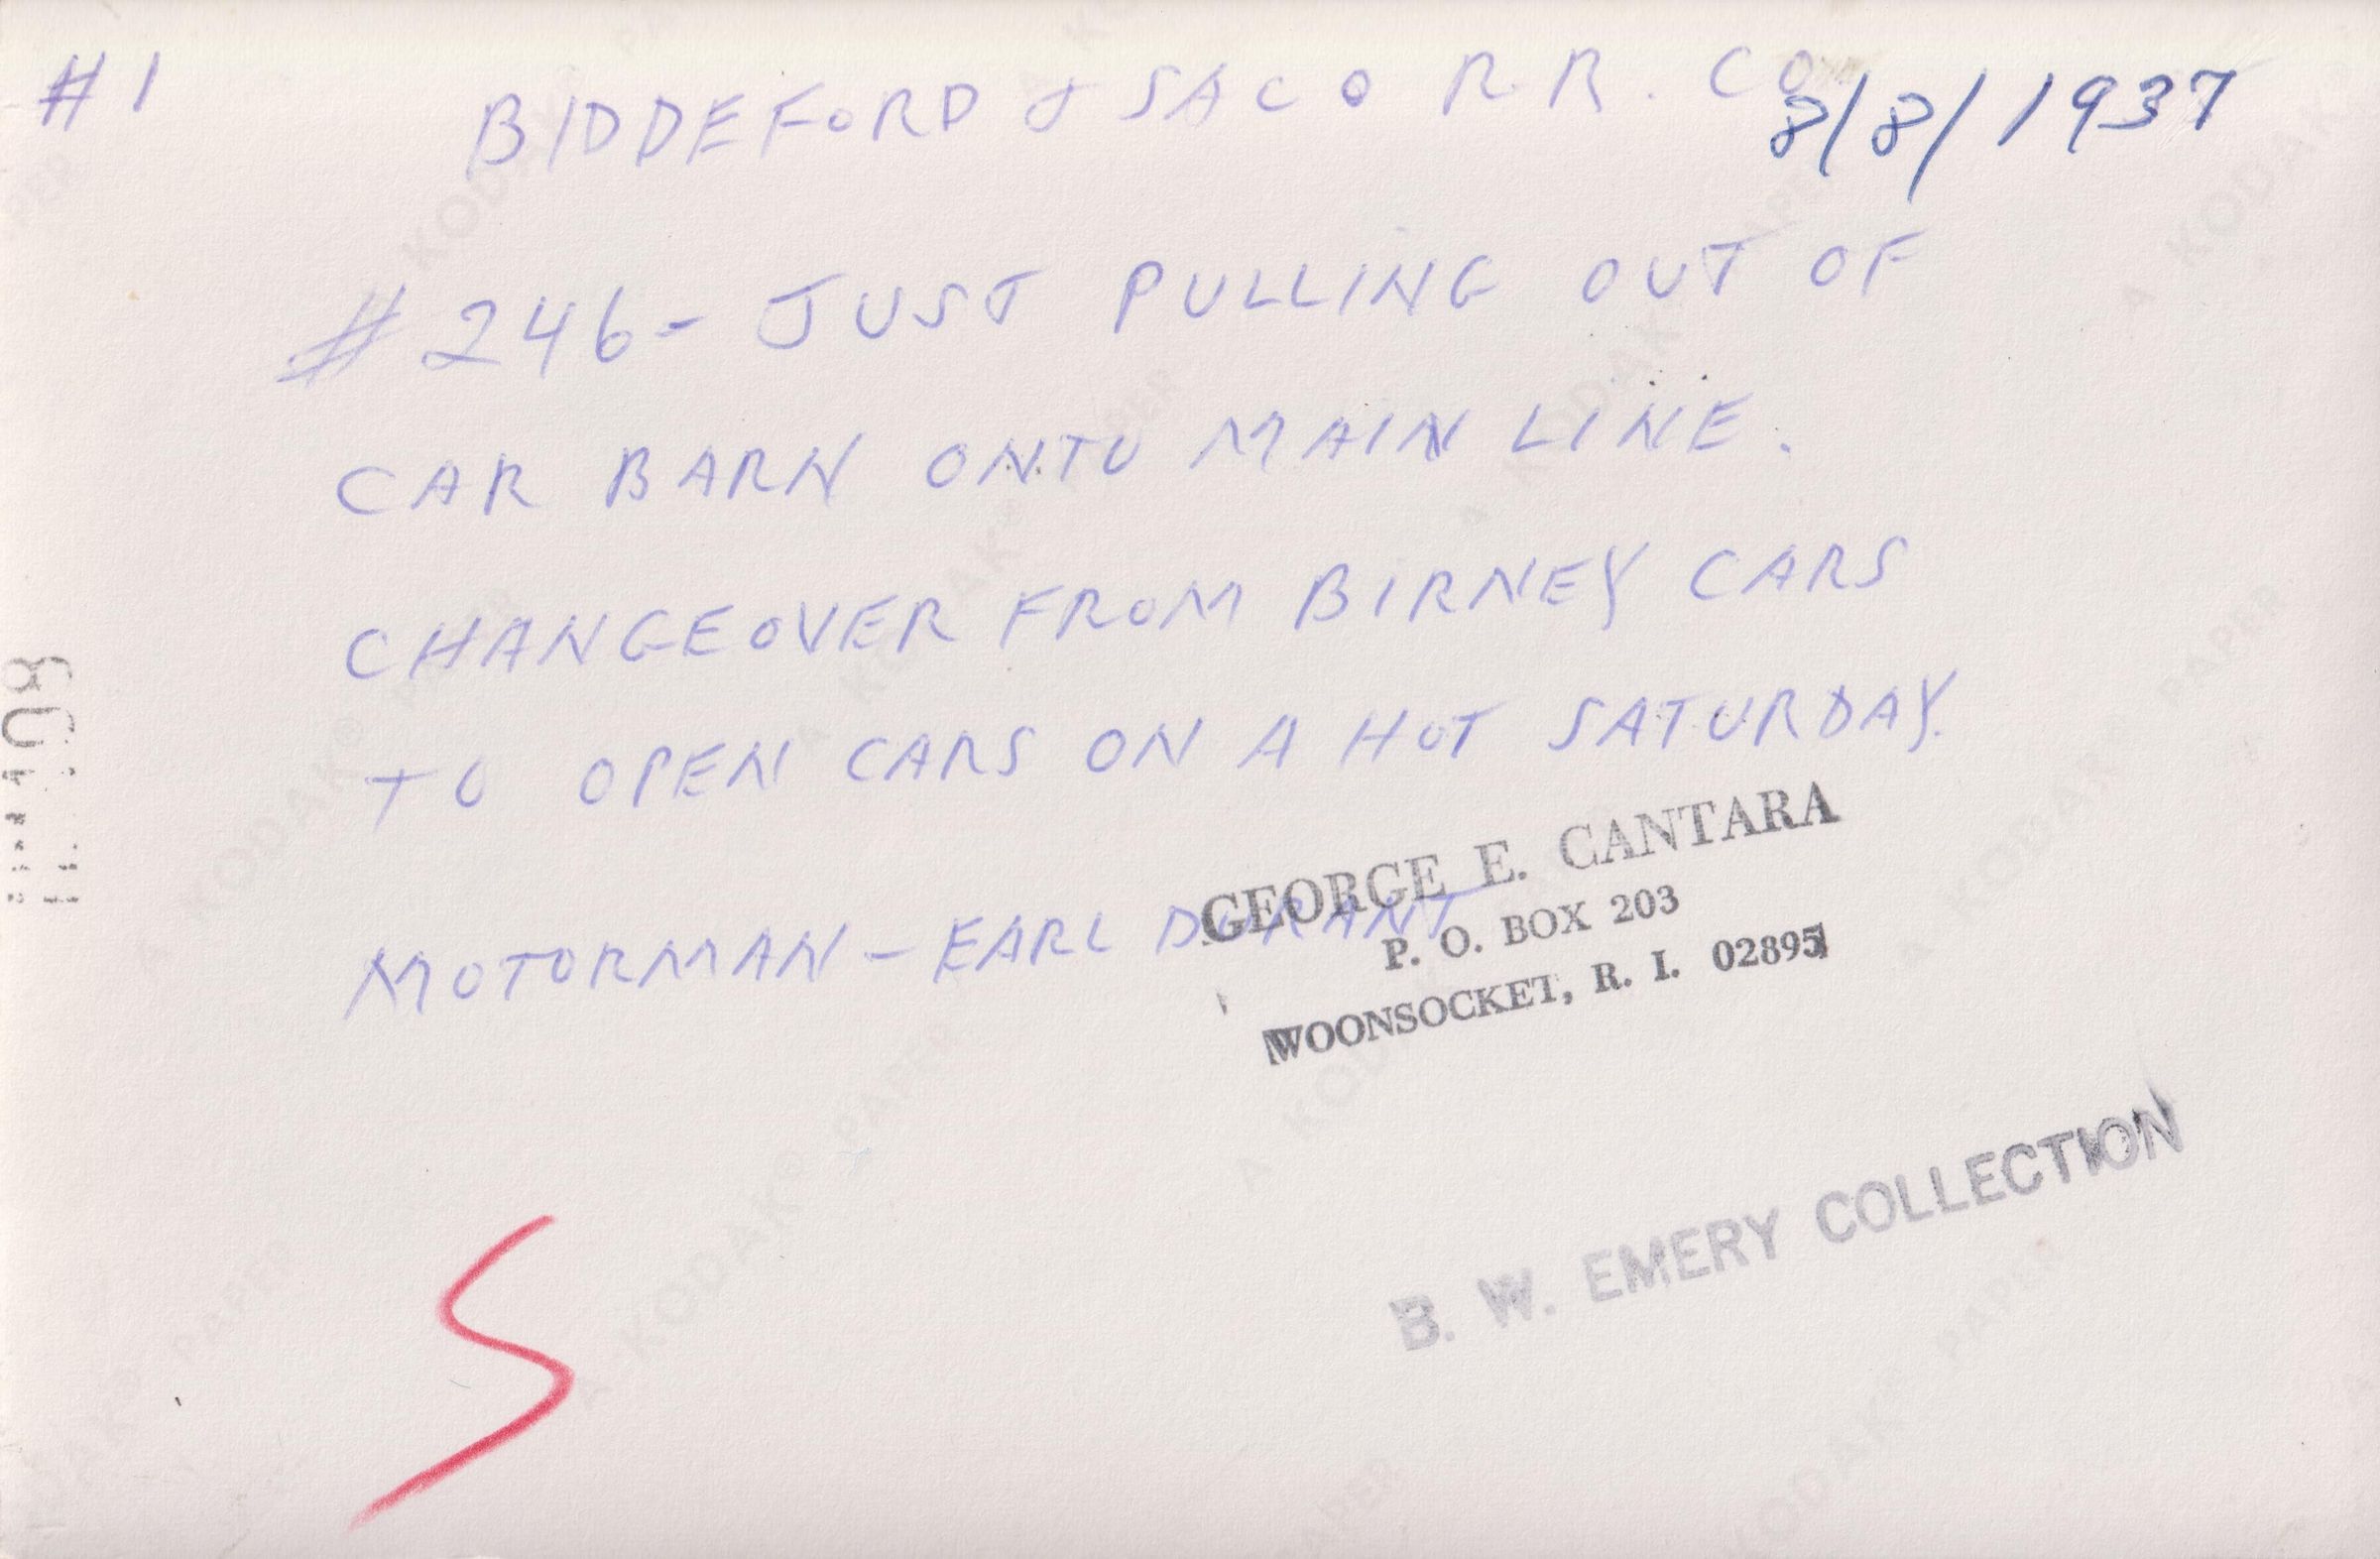 #1
BIDDEFORD & SACO R.R. CO.
8/8/1937
#246- JUST PULLING OUT OF
CAR BARN ONTO MAIN LINE.
CHANGEOVER FROM BIRNEY CARS
TO OPEN CARS ON A HOT SATURDAY.
MOTORMAN - EARL DURANT
GEORGE E. CANTARA
P. O. BOX 203
WOONSOCKET, R. I. 02895
B. W. EMERY COLLECTION
S
A KODAK® PAPER